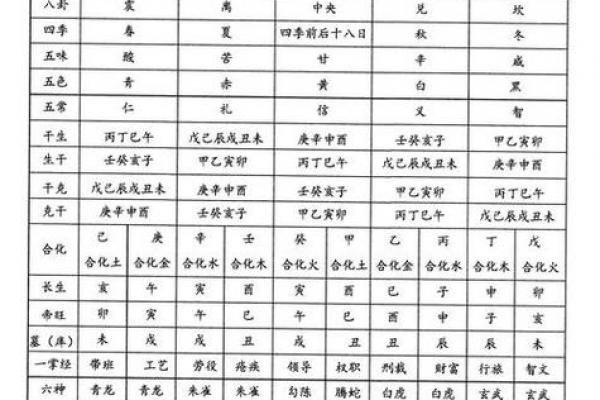 八卦 震 离 中央 兑 坎
四季 春 夏 四季前后十八日 秋 冬
五味 酸 苦 甘 辛 咸
五色 青 赤 黄 白 黑
五常 仁 礼 信 义 智
干生 丙丁巳午 戊己辰戌丑未 庚辛申酉 壬癸亥子 甲乙寅卯
生干 壬癸亥子 甲乙寅卯 丙丁巳午 戊己辰戌丑未 庚辛申酉
干克 戊己辰戌丑未 庚辛申酉 壬癸亥子 甲乙寅卯 丙丁巳午
克干 庚辛申酉 壬癸亥子 甲乙寅卯 丙丁巳午 戊己辰戌丑未
己 庚 辛 壬 癸 甲 乙 丙 丁 戊
合化 合化土 合化金 合化水 合化木 合化火 合化土 合化金 合化水 合化木 合化火
长生 亥 午 寅 酉 寅 酉 巳 子 申 卯
帝旺 卯 寅 午 巳 午 巳 酉 申 子 亥
墓（库） 未 戌 戌 丑 丑 丑 辰 辰 未
一掌经 带班 工艺 劳役 疮疾 领导 权职 刑裁 财富 行旅 智文
六神 青龙 青龙 朱雀 朱雀 勾陈 腾蛇 白虎 白虎 玄武 玄武